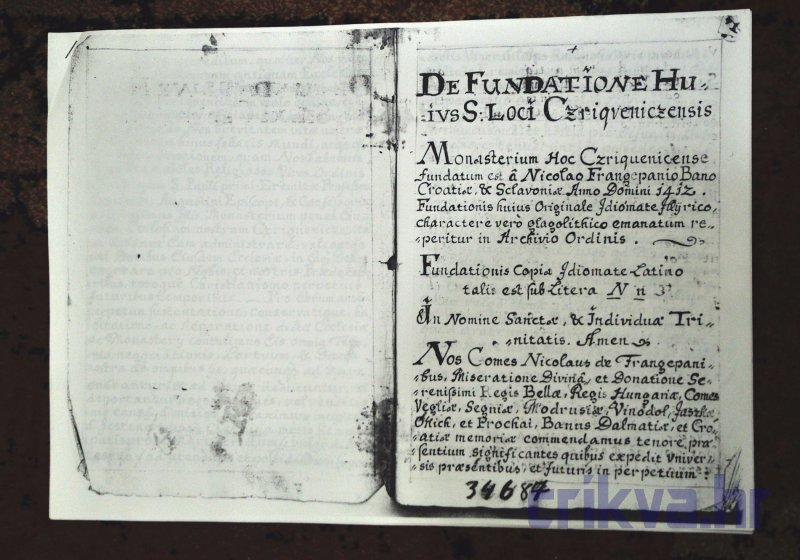 DE FUNDATIONE HU-
-IVS S: LOCI CZRIQVENICZENSIS
Monasterium Hoc Czriquenicense
fundatum est â Nicolao Frangepanio Bano
Croatiæ, & Sclavoniæ Anno Domini 1412.
Fundationis huius Originale Idiomate Illyrico,
charactere verò glagolithico emanatum re-
peritur in Archivio Ordinis.
Fundationis Copia Idiomate Latino
talis est sub Litera N n 3
In Nomine Sanctæ, & Individuæ Tri-
nitatis. Amen
Nos Comes Nicolaus de Frangepani-
bus, Miseratione Divinâ, et Donatione Se-
renissimi Regis Bellæ, Regis Hungariæ, Comes
Vegliæ, Segniæ, Modrusiæ, Vinodol,
et Prochai, Banus Dalmatiæ, et Cro-
atiæ memoriæ commendamus tenore præ-
sentium significantes quibus expedit Vniver-
sis præsentibus, et futuris in perpetuum:
34684
crikva.hr